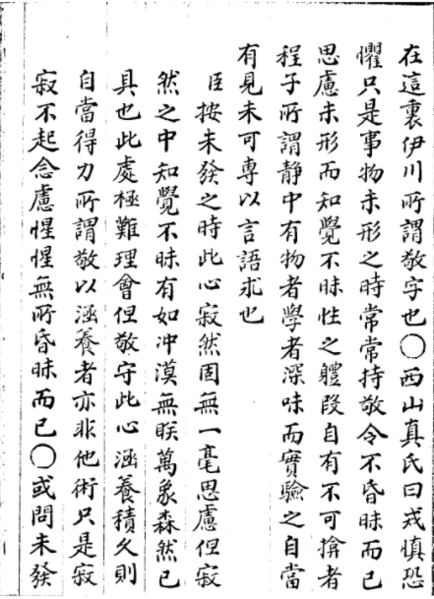 在這裏伊川所謂敬字也〇西山真氏曰戒慎恐
懼只是事物未形之時常常持敬令不昏昧而已
思慮未形而知覺不昧性之軆段自有不可揜者
程子所謂静中有物者學者深味而實驗之自當
有見未可專以言語求也
臣按未發之時此心寂然固無一毫思慮但寂
然之中知覺不昧有如冲漠無眹萬象森然已
具也此處極難理會但敬守此心涵養積久則
自當得力所謂敬以涵養者亦非他術只是寂
寂不起念慮惺惺無所昏昧而已〇或問未發